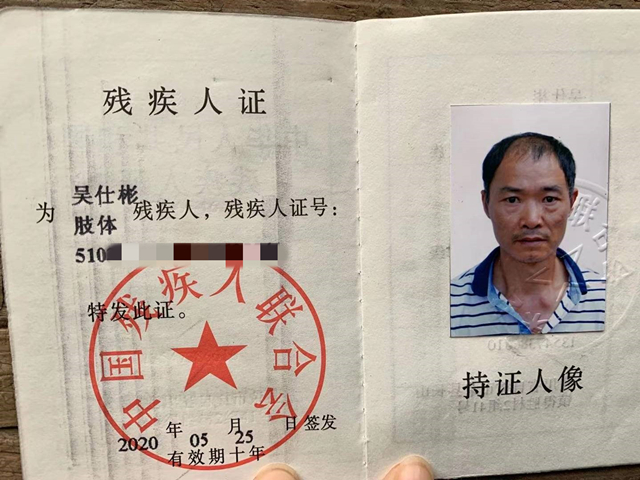 残疾人证
吴仕彬
为 肢体 残疾人，残疾人证号：
510
特发此证。
中国残疾人联合会
2020 年 05 月 25 日 签发
有效期十年
持证人像